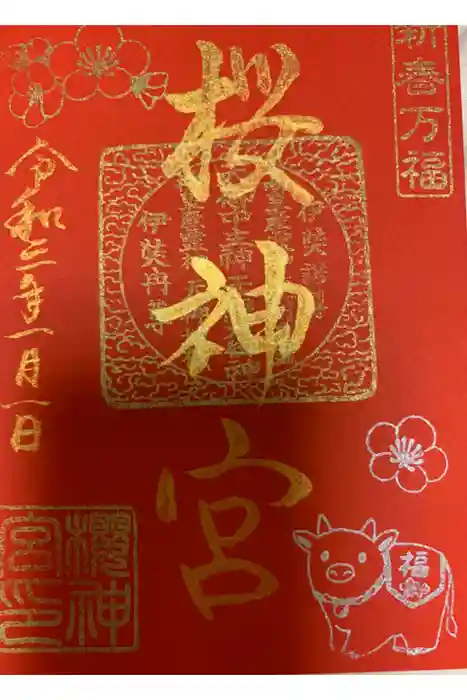 新春万福
桜神宮
伊奘冉尊
令和三年一月一日
櫻神
宮印
福